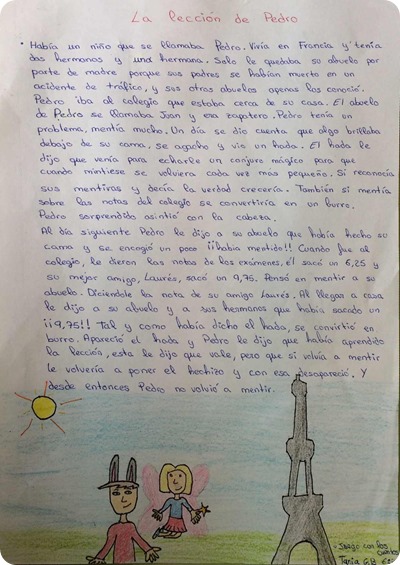 La lección de Pedro
• Había un niño que se llamaba Pedro. Vivía en Francia y tenía
dos hermanos y una hermana. Solo le quedaba su abuelo por
parte de madre porque sus padres se habían muerto en un
accidente de tráfico, y sus otros abuelos apenas los conoció.
Pedro iba al colegio que estaba cerca de su casa. El abuelo
de Pedro se llamaba Juan y era zapatero. Pedro tenía un
problema, mentía mucho. Un día se dio cuenta que algo brillaba
debajo de su cama. Se agachó y vio un hada. El hada le
dijo que venía para echarle un conjuro mágico para que
cuando mintiese se volviera cada vez mas pequeño. Si reconocía
sus mentiras y decía la verdad crecería. También si mentía
sobre las notas del colegio se convertiría en un burro.
Pedro sorprendido asintió con la cabeza.
Al día siguiente Pedro le dijo a su abuelo que había hecho su
cama y se encogió un poco ¡¡había mentido!! Cuando fue al
colegio, le dieron las notas de los exámenes. él sacó un 6,25 y
su mejor amigo, Laurés, sacó un 9,75. Pensó en mentir a su
abuelo. Diciendole la nota de su amigo Laurés. Al llegar a casa
le dijo a su abuelo y a sus hermanos que había sacado un
¡¡9,75!! Tal y como había dicho el hada, se convirtió en
burro. Apareció el hada y Pedro le dijo que había aprendido
la lección, esta le dijo que vale, pero que si volvía a mentir
le volvería a poner el hechizo y con esa desapareció. Y
desde entonces Pedro no volvió a mentir.
- Juego con los
cuentos
Tania G.B